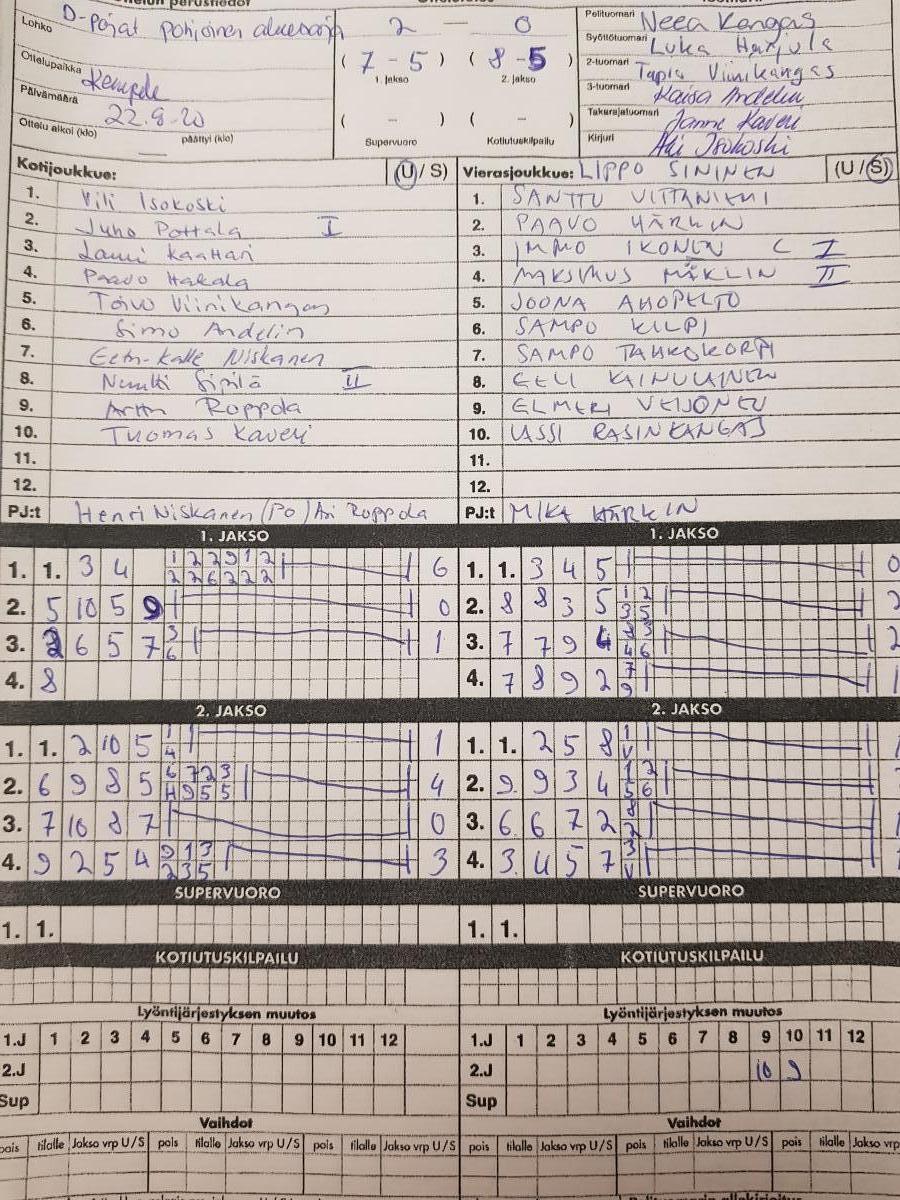 Lohko D-pojat pohjoinen aluesarja 2 - 0 Pelituomari Neea Kangas
( 7 - 5 ) ( 8 - 5 ) Syöttötuomari Luka Harjula
Ottelupaikka Kempele 1. jakso 2. jakso 2-tuomari Tapio Viinikangas
Päivämäärä 22.8.20 3-tuomari Kaisa Andelin
( - ) ( - ) Takarajatuomari Janne Kaveri
Ottelu alkoi (klo) päättyi (klo) Supervuoro Kotiutuskilpailu Kirjuri Aki Isokoski
Kotijoukkue: (U / S) Vierasjoukkue: LIPPO SININEN (U / S)
1. Vili Isokoski 1. SANTTU VIITTANIEMI
2. Juho Pottala I 2. PAAVO HÄRKIN
3. Lauri Kaattari 3. IMMO IKONEN C I
4. Paavo Hakala 4. MAKSIMUS MÄKLIN II
5. Toivo Viinikangas 5. JOONA AHOPELTO
6. Simo Andelin 6. SAMPO KILPI
7. Eetu-Kalle Niskanen 7. SAMPO TAHKOKORPI
8. Sipilä II 8. EELI KAINULAINEN
9. Roppola 9. ELMERI VEIJONEN
10. Tuomas Kaveri 10. RASINKANGAS
11. 11.
12. 12.
PJ:t Henri Niskanen (PO) Ari Roppola PJ:t MIKA HÄRKIN
1. JAKSO 1. JAKSO
1. 1. 3 4 1 2 2 9 1 2 6 1. 1. 3 4 5 0
2 2 6 2 2 2
2. 5 10 5 9 0 2. 8 8 3 5 1 2 2
3 5
3. 2 6 5 7 3 1 3. 7 7 9 4 3 3 2
6 4 6
4. 8 4. 7 8 9 2 7 1
9
2. JAKSO 2. JAKSO
1. 1. 2 10 5 1 1 1. 1. 2 5 8 1
4 V
2. 6 9 8 5 6 7 2 3 4 2. 9 9 3 4 1 2
H 9 5 5 5 6
3. 7 10 8 7 0 3. 6 6 7 2 8
2
4. 9 2 5 4 9 1 3 3 4. 3 4 5 7 3
2 3 5 V
SUPERVUORO SUPERVUORO
1. 1. 1. 1.
KOTIUTUSKILPAILU KOTIUTUSKILPAILU
Lyöntijärjestyksen muutos Lyöntijärjestyksen muutos
1.J 1 2 3 4 5 6 7 8 9 10 11 12 1.J 1 2 3 4 5 6 7 8 9 10 11 12
2.J 2.J 10 9
Sup Sup
Vaihdot Vaihdot
pois tilalle Jakso vrp U/S pois tilalle Jakso vrp U/S pois tilalle Jakso vrp U/S pois tilalle Jakso vrp U/S pois tilalle Jakso vrp U/S pois tilalle Jakso vrp